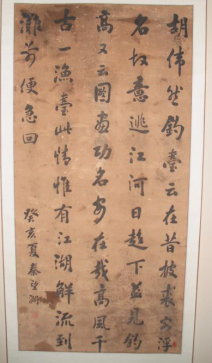 胡伟然钓台云在昔披裘客浮
名故意逃江河日趋下益见钓
高又云图画功名安在哉高风千
古一渔台此情惟有江湖解流到
滩前便急回
癸亥夏